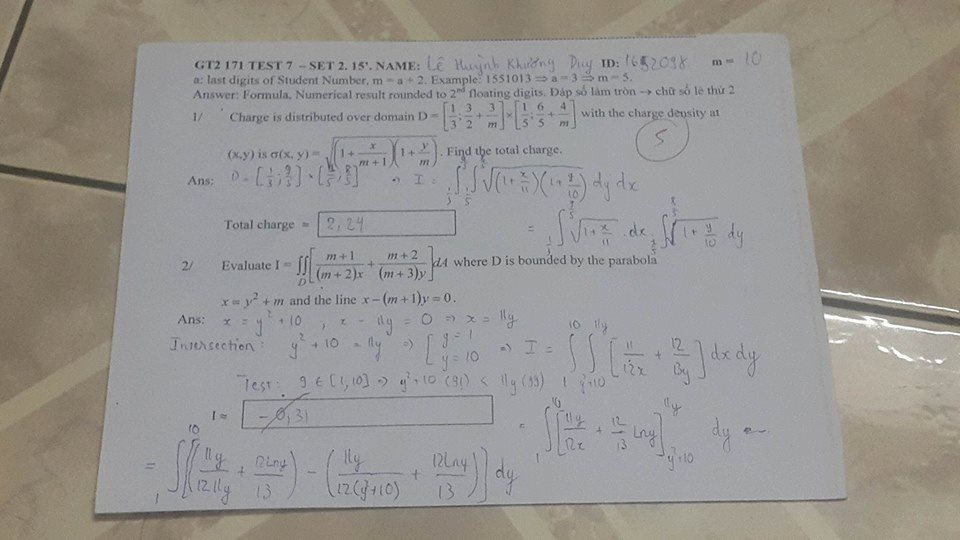 GT2 171 TEST 7 – SET 2. 15'. NAME: Lê Huỳnh Khương Duy ID: 1652098 m = 10
a: last digits of Student Number, m = a + 2. Example: 1551013 ⟹ a = 3 ⟹ m = 5.
Answer: Formula, Numerical result rounded to 2nd floating digits. Đáp số làm tròn → chữ số lẻ thứ 2
1/ Charge is distributed over domain D = [1/3; 3/2 + 3/m] × [1/5; 6/5 + 4/m] with the charge density at
(x,y) is σ(x, y) = √((1 + x/(m+1))(1 + y/m)). Find the total charge.
5
Ans: D = [1/3; 9/5] × [1/5; 8/5] ⇒ I = ∫_{1/3}^{9/5} ∫_{1/5}^{8/5} √((1 + x/11)(1 + y/10)) dy dx
= ∫_{1/3}^{9/5} √(1 + x/11) . dx . ∫_{1/5}^{8/5} √(1 + y/10) dy
Total charge = 2,24
2/ Evaluate I = ∬_D [(m+1)/((m+2)x) + (m+2)/((m+3)y)] dA where D is bounded by the parabola
x = y² + m and the line x – (m + 1)y = 0.
Ans: x = y² + 10 , x - 11y = 0 ⇒ x = 11y
Intersection: y² + 10 = 11y ⇒ [y = 1 y = 10 ⇒ I = ∫_1^{10} ∫_{y²+10}^{11y} [11/12x + 12/13y] dx dy
Test: 9 ∈ [1, 10] ⇒ y² + 10 (91) < 11y (99)
I = - 0,31
= ∫_1^{10} [11y/12x + 12/13 Lny]_{y²+10}^{11y} dy
= ∫_1^{10} [(11y/12 11y + 12Lny/13) - (11y/12(y²+10) + 12Lny/13)] dy